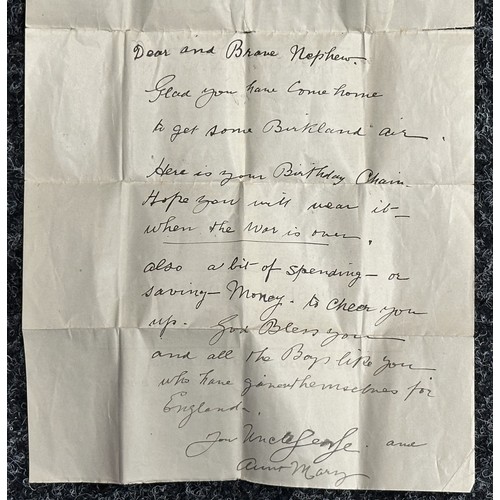 Dear and Brave Nephew.
Glad you have Come home
to get some Birkland air.
Here is your Birthday Chain.
Hope you will wear it—
when the War is over.
also a bit of spending— or
saving— Money. to cheer you
up. God Bless you
and all the Boys like you
who have given themselves for
England.
Uncle George. and
Aunt Mary